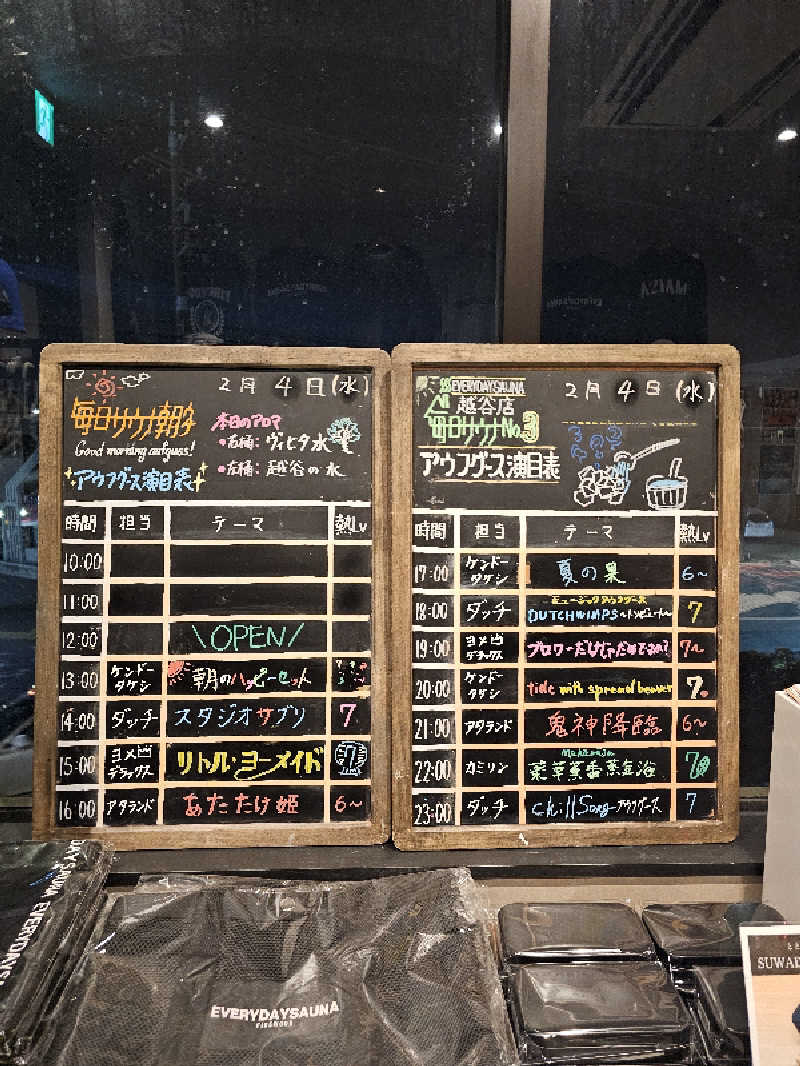 2月 4日 (水)
毎日サウナ朝刊
Good morning aufguss!
アウフグース演目表
本日のアロマ
・右桶: ヴィヒタ水
・左桶: 越谷の水
時間 担当 テーマ 熱Lv
10:00
11:00
12:00 \OPEN/
13:00 ケンドータケシ 朝のハッピーセット
14:00 ダッチ スタジオサブリ 7
15:00 ヨメ凸デラックス リトル・ヨーメイド
16:00 アタランド あたたけ姫 6~
2月 4日 (水)
EVERYDAYSAUNA
越谷店
毎日サウナNo.3
アウフグース演目表
時間 担当 テーマ 熱Lv
17:00 ケンドータケシ 夏の果 6~
18:00 ダッチ 7
19:00 ヨメ凸デラックス 7~
20:00 ケンドータケシ tide with spread beaver 7.
21:00 アタランド 鬼神降臨 6~
22:00 カミリン 薬草薫香蒸気浴 7
23:00 ダッチ Chill Song アウフグース 7
EVERYDAYSAUNA
EVERYDAYSAUNA
SUWA